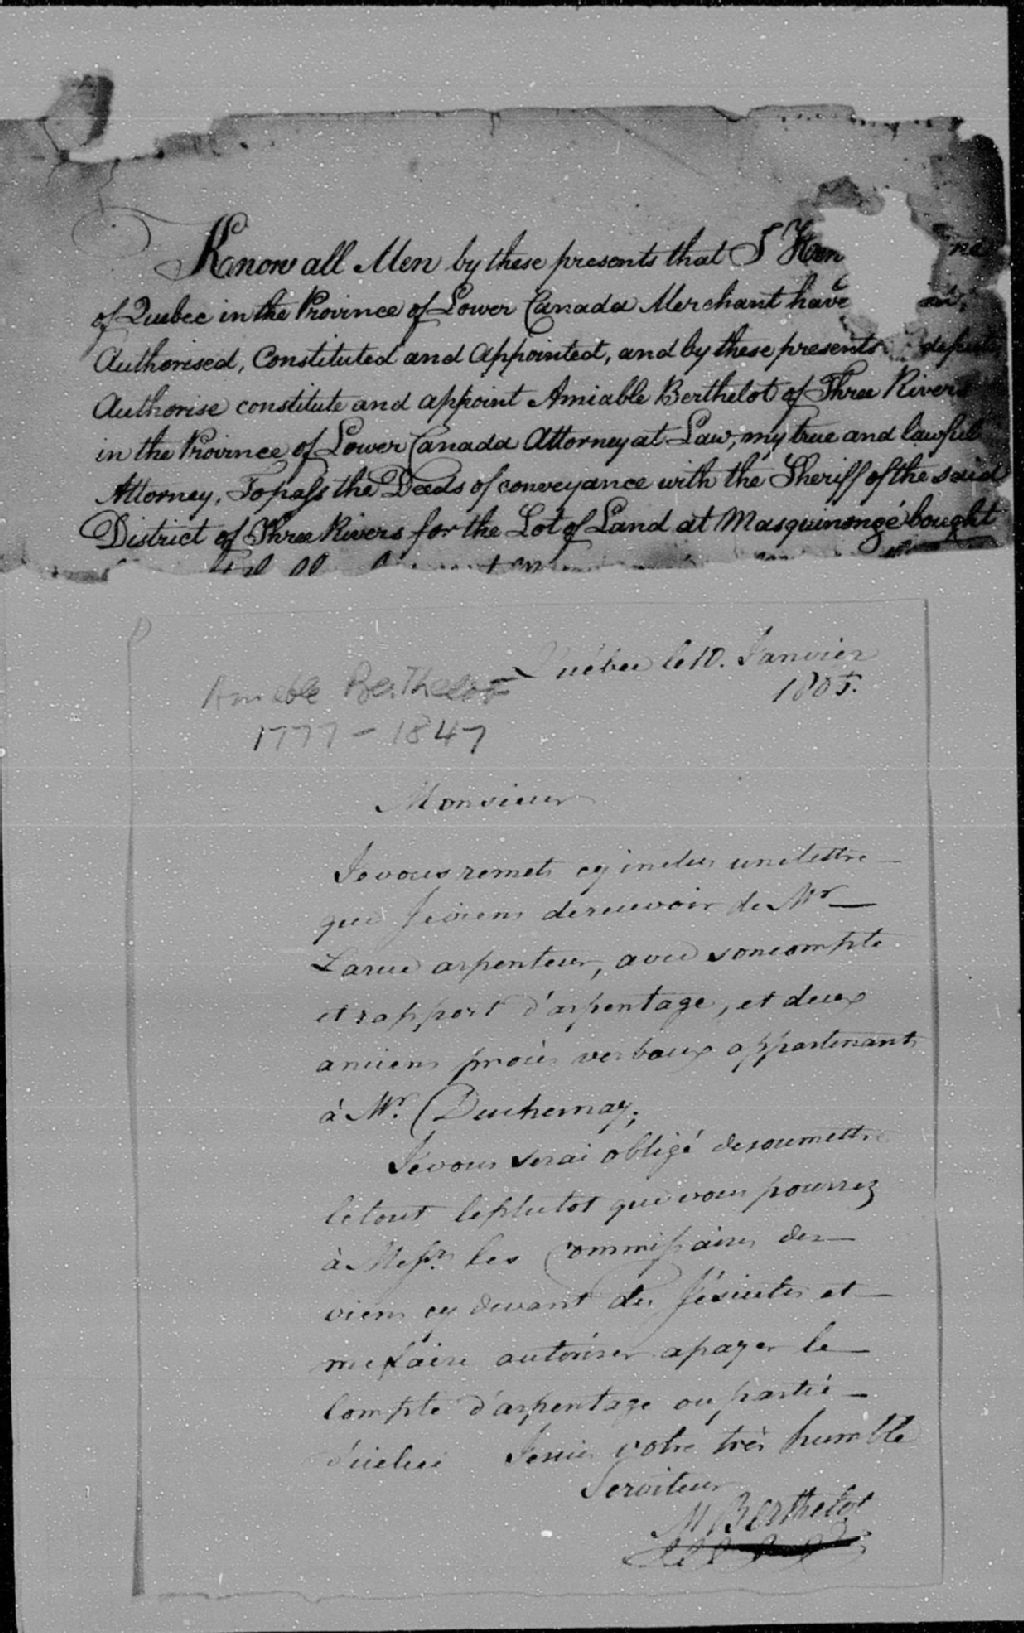 Know all Men by these presents that I Hen
of Quebec in the Province of Lower Canada Merchant have
Authorised, Constituted and Appointed, and by these presents depute
Authorise constitute and appoint Amiable Berthelot of Three Rivers
in the Province of Lower Canada Attorney at Law, my true and lawful
Attorney, To pass the Deeds of conveyance with the Sheriff of the said
District of Three Rivers for the Lot of Land at Masquinongé bought
Québec le 10. Janvier
1805.
Amable Berthelot
1777 - 1847
Monsieur
Je vous remets cy inclus une lettre
que je viens de recevoir de Mr
Larue arpenteur, avec son compte
et rapport d'arpentage, et deux
anciens procès verbaux appartenants
à Mr. Duchesnay;
Je vous serai obligé de soumettre
le tout le plutot que vous pourrez
à Messrs. les Commissaires des
viens cy devant des Jésuites et
me faire autoriser a payer le
Compte d'arpentage ou partie
d'icelui Je suis votre très humble
Serviteur
M Berthelot